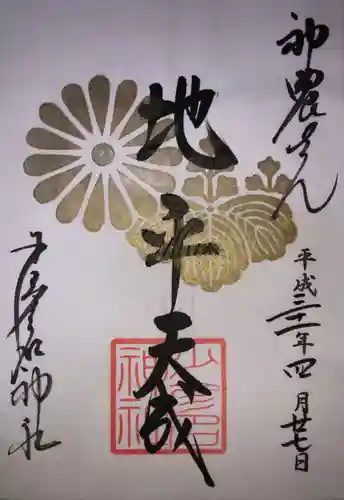 神農さん
平成三十一年四月廿七日
地平天成
少彦名神社
少彦名
神社